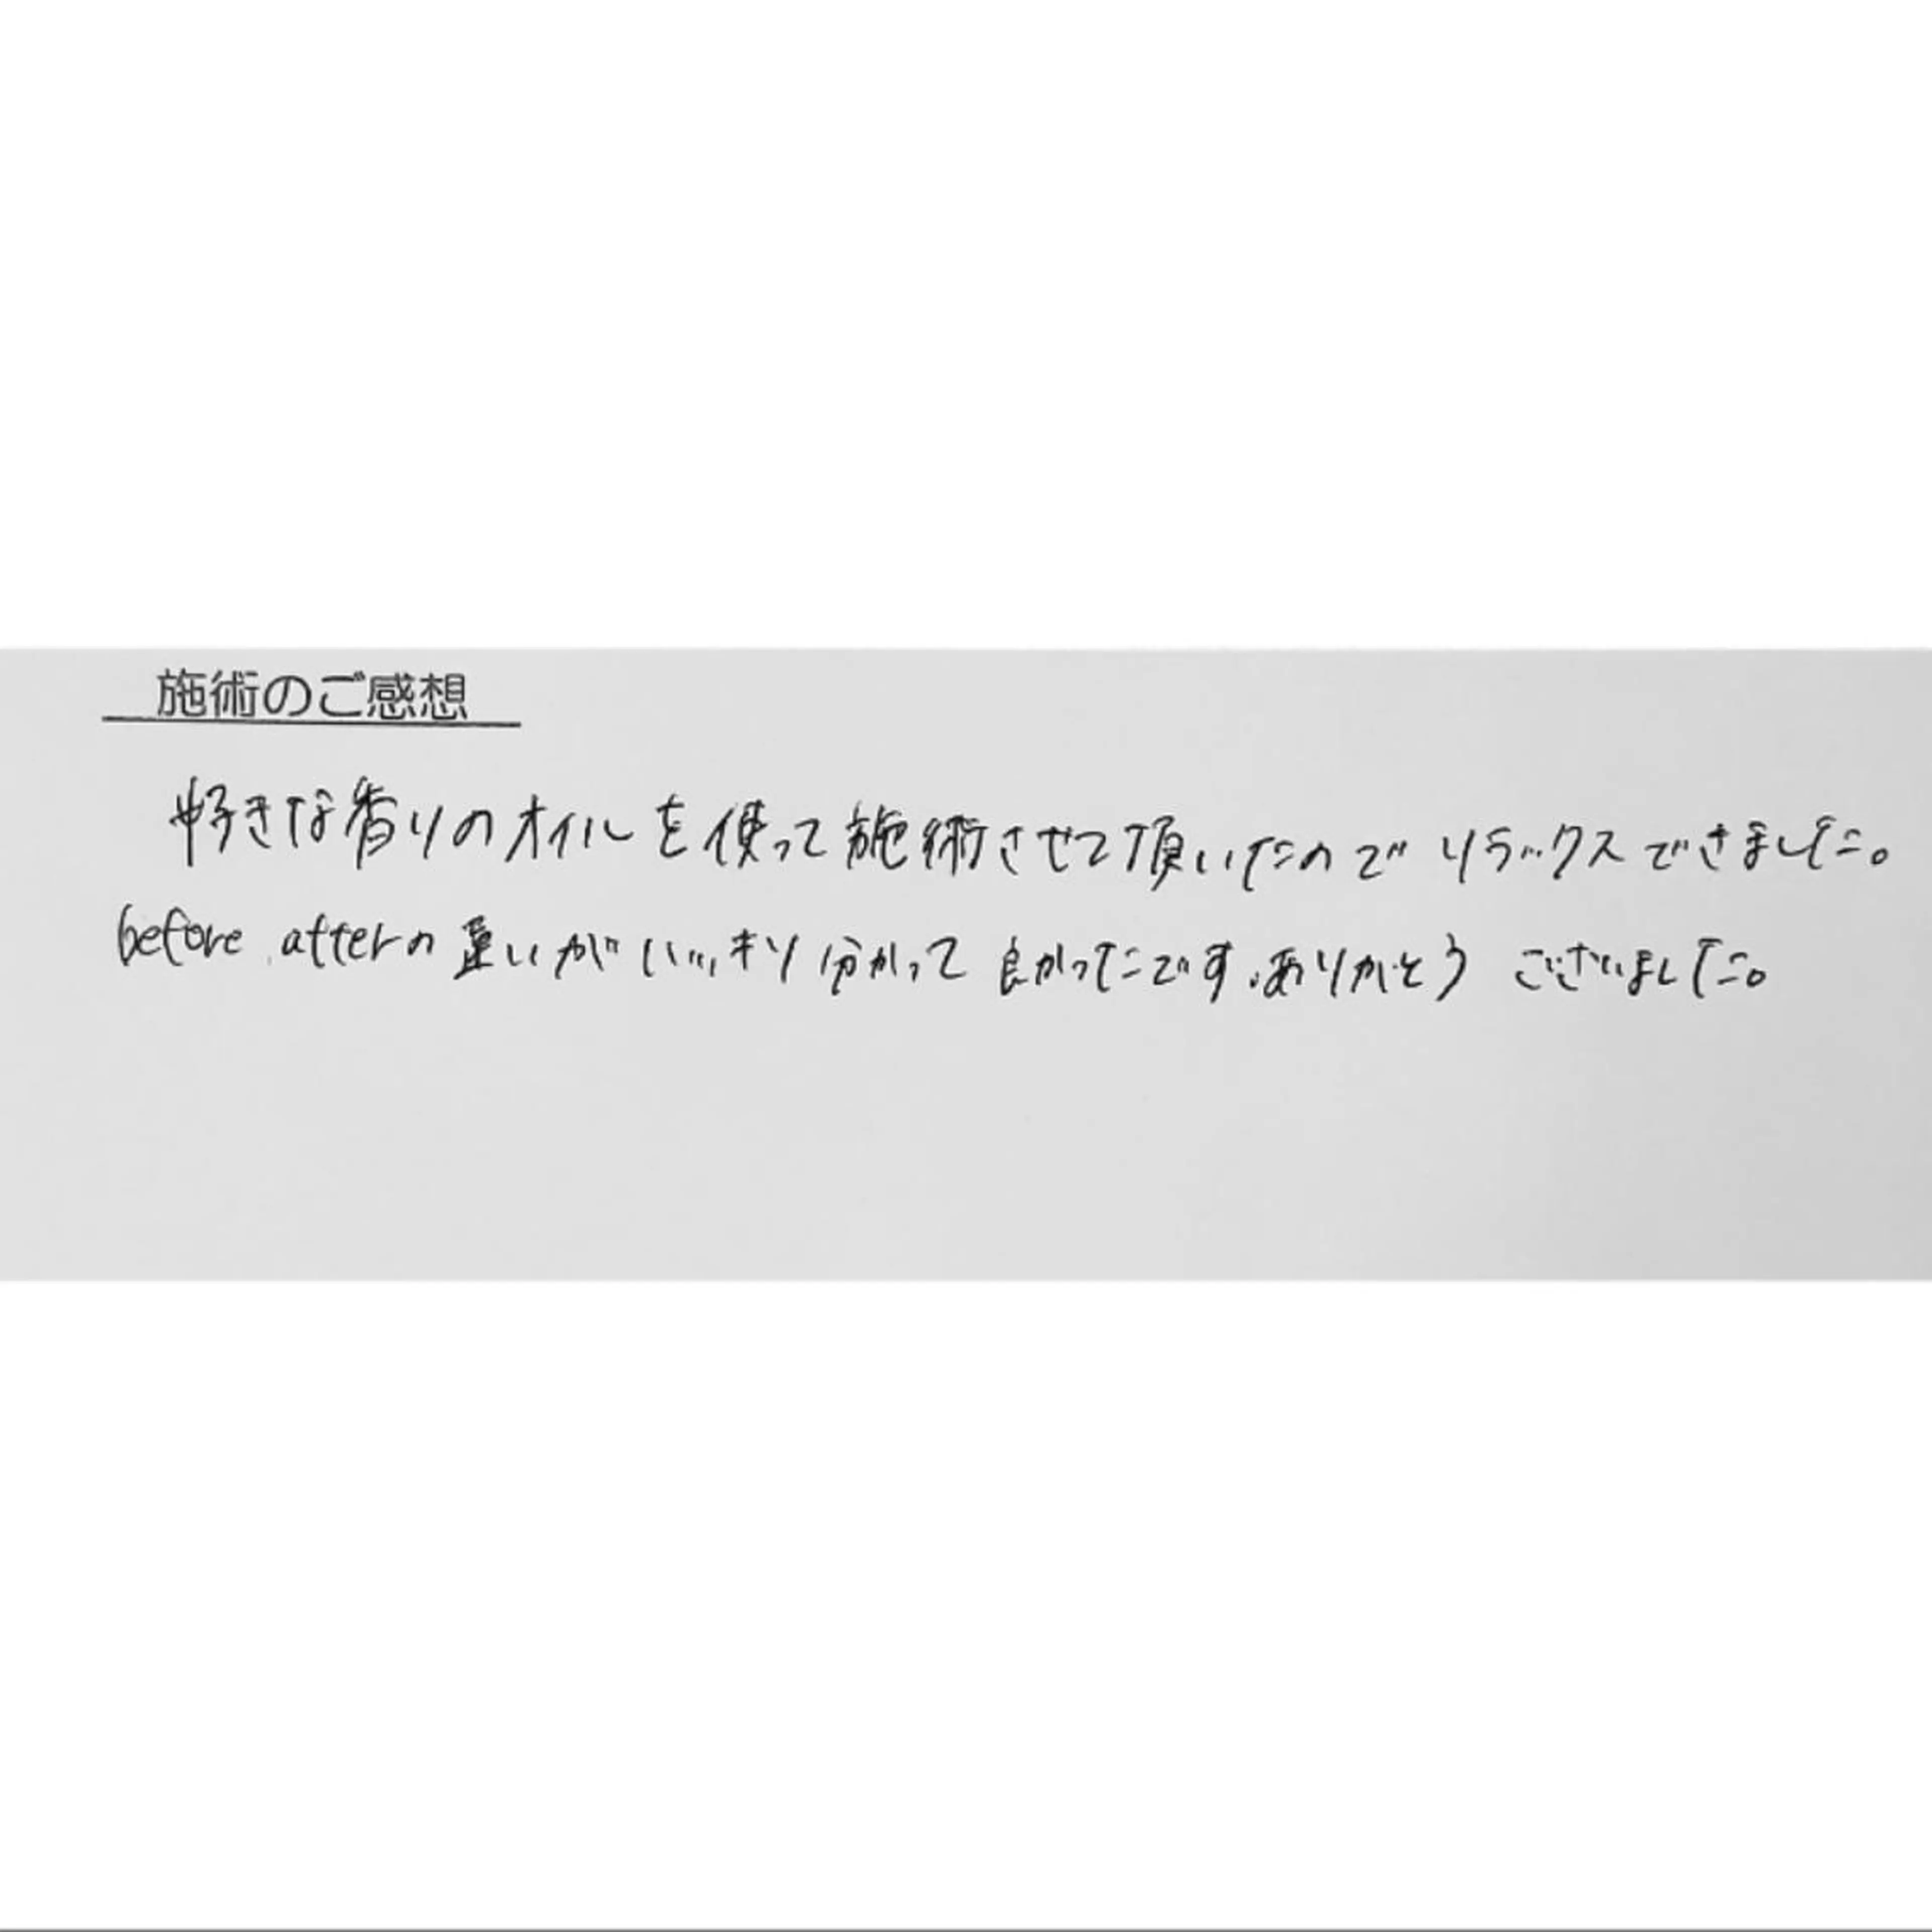 施術のご感想
好きな香りのオイルを使って施術させて頂いたのでリラックスできました。
before afterの違いがハッキリ分かって良かったです。ありがとうございました。